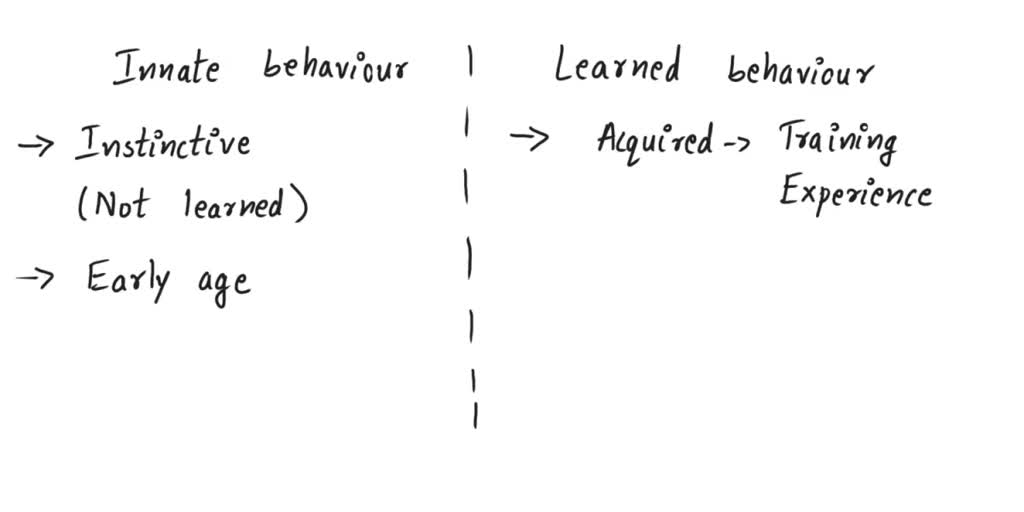 Innate behaviour
→ Instinctive
(Not learned)
→ Early age
Learned behaviour
→ Acquired → Training
Experience